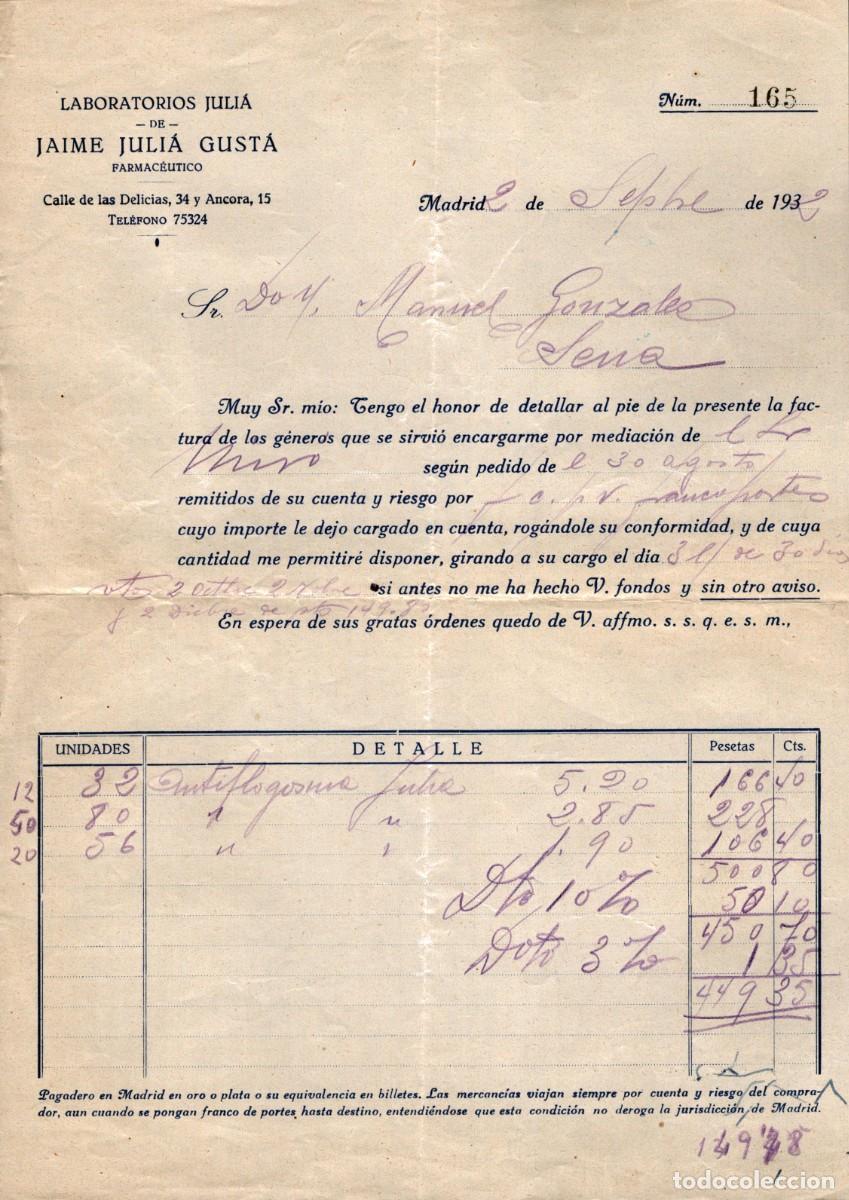 LABORATORIOS JULIÁ
— DE —
JAIME JULIÁ GUSTÁ
FARMACÉUTICO
Calle de las Delicias, 34 y Ancora, 15
TELÉFONO 75324
Núm. 165
Madrid 2 de Sepbre de 1932
Sr. Don Manuel Gonzalez
Sena
Muy Sr. mío: Tengo el honor de detallar al pie de la presente la fac-
tura de los géneros que se sirvió encargarme por mediación de l Sr
según pedido de l 30 agosto
remitidos de su cuenta y riesgo por f c. p. v. franco portes
cuyo importe le dejo cargado en cuenta, rogándole su conformidad, y de cuya
cantidad me permitiré disponer, girando a su cargo el día 3 l/ de 30 días
vto 2 Octbre 2 Nbre si antes no me ha hecho V. fondos y sin otro aviso.
y 2 Dicbre de pts 149.85
En espera de sus gratas órdenes quedo de V. affmo. s. s. q. e. s. m.,
UNIDADES DETALLE Pesetas Cts.
12 32 Antiflogosina Julia 5.20 166 40
50 80 " " 2.85 228
20 56 " " 1.90 106 40
500 80
Dto 10 % 50 10
450 70
Dto 3 % 1 35
449 35
Pagadero en Madrid en oro o plata o su equivalencia en billetes. Las mercancías viajan siempre por cuenta y riesgo del compra-
dor, aun cuando se pongan franco de portes hasta destino, entendiéndose que esta condición no deroga la jurisdicción de Madrid.
todocoleccion